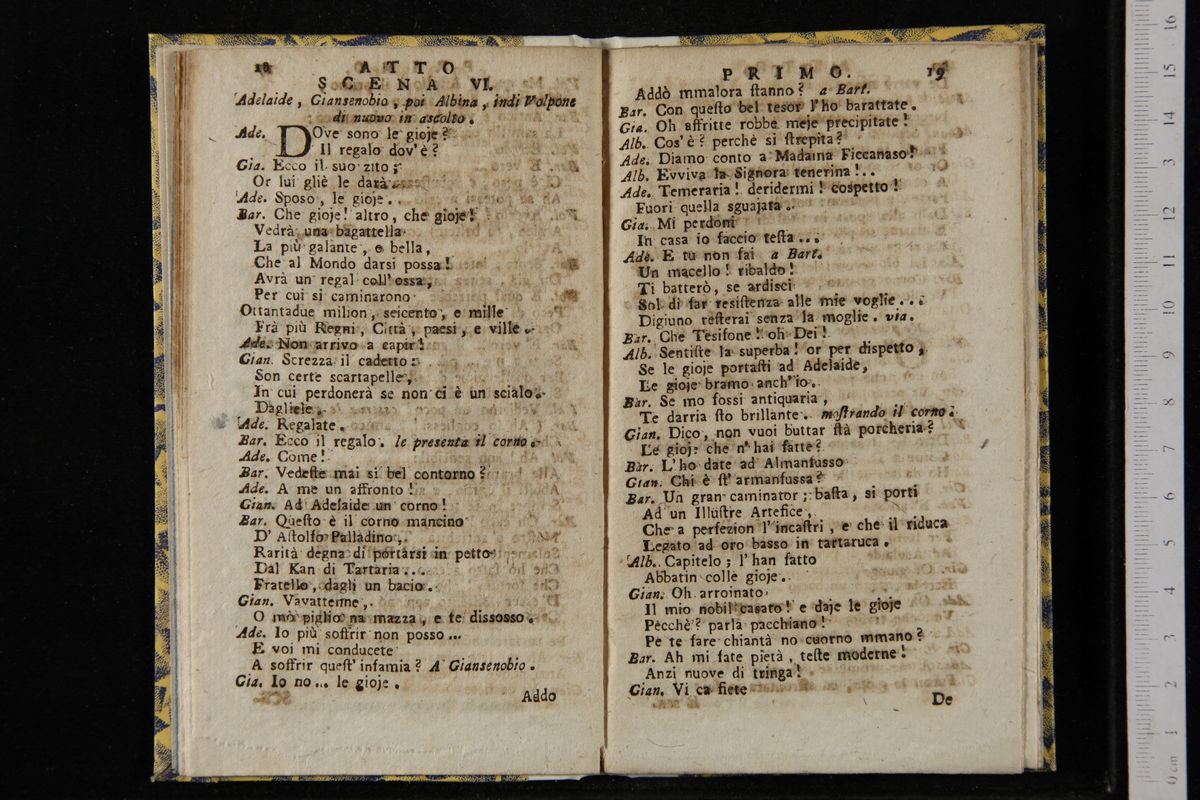 18 ATTO
SCENA VI.
Adelaide, Giansenobio, poi Albina, indi Volpone
di nuovo in ascolto.
Ade. DOve sono le gioje?
Il regalo dov'è?
Gia. Ecco il suo zito;
Or lui gliè le darà
Ade. Sposo, le gioje.
Bar. Che gioje! altro, che gioje!
Vedrà una bagattella
La più galante, e bella,
Che al Mondo darsi possa!
Avrà un regal coll' ossa,
Per cui si caminarono
Ottantadue milion, seicento, e mille
Frà più Regni, Città, paesi, e ville.
Ade. Non arrivo a capir!
Gian. Screzza il cadetto:
Son certe scartapelle,
In cui perdonerà se non ci è un scialo.
Dagliele.
Ade. Regalate.
Bar. Ecco il regalo. le presenta il corno.
Ade. Come!
Bar. Vedeſte mai si bel contorno?
Ade. A me un affronto!
Gian. Ad Adelaide un corno!
Bar. Queſto è il corno mancino
D' Aſtolfo Palladino,
Rarità degna di portarsi in petto
Dal Kan di Tartaria...
Fratello, dagli un bacio.
Gian. Vavattenne,
O mò piglio na mazza, e te dissosso.
Ade. Io più soffrir non posso...
E voi mi conducete
A soffrir queſt' infamia? A Giansenobio.
Gia. Io no... le gioje.
Addo
PRIMO. 19
Addò mmalora ſtanno? a Bart.
Bar. Con queſto bel tesor l'ho barattate.
Gia. Oh affritte robbe meje precipitate!
Alb. Cos'è? perchè si ſtrepita?
Ade. Diamo conto a Madama Ficcanaso!
Alb. Evviva la Signora tenerina!..
Ade. Temeraria! deridermi! cospetto!
Fuori quella sguajata.
Gia. Mi perdoni
In casa io faccio teſta...
Ade. E tu non fai a Bart.
Un macello! ribaldo!
Ti batterò, se ardisci
Sol di far resiſtenza alle mie voglie...
Digiuno reſterai senza la moglie. via.
Bar. Che Tesifone! oh Dei!
Alb. Sentiſte la superba! or per dispetto,
Se le gioje portaſti ad Adelaide,
Le gioje bramo anch'io.
Bar. Se mo fossi antiquaria,
Te darria ſto brillante. moſtrando il corno.
Gian. Dico, non vuoi buttar ſtà porcheria?
Le gioje che n'hai fatte?
Bar. L'ho date ad Almanfusso
Gian. Chi è ſt' armanfussa?
Bar. Un gran caminator; baſta, si porti
Ad un Illuſtre Artefice,
Che a perfezion l'incaſtri, e che il riduca
Legato ad oro basso in tartaruca.
Alb. Capitelo; l'han fatto
Abbatin colle gioje.
Gian. Oh arroinato
Il mio nobil casato! e daje le gioje
Pecchè? parla pacchiano!
Pe te fare chiantà no cuorno mmano?
Bar. Ah mi fate pietà, teſte moderne!
Anzi nuove di tringa!
Gian. Vi ca ſiete
De
0 cm 1 2 3 4 5 6 7 8 9 10 11 12 13 14 15 16